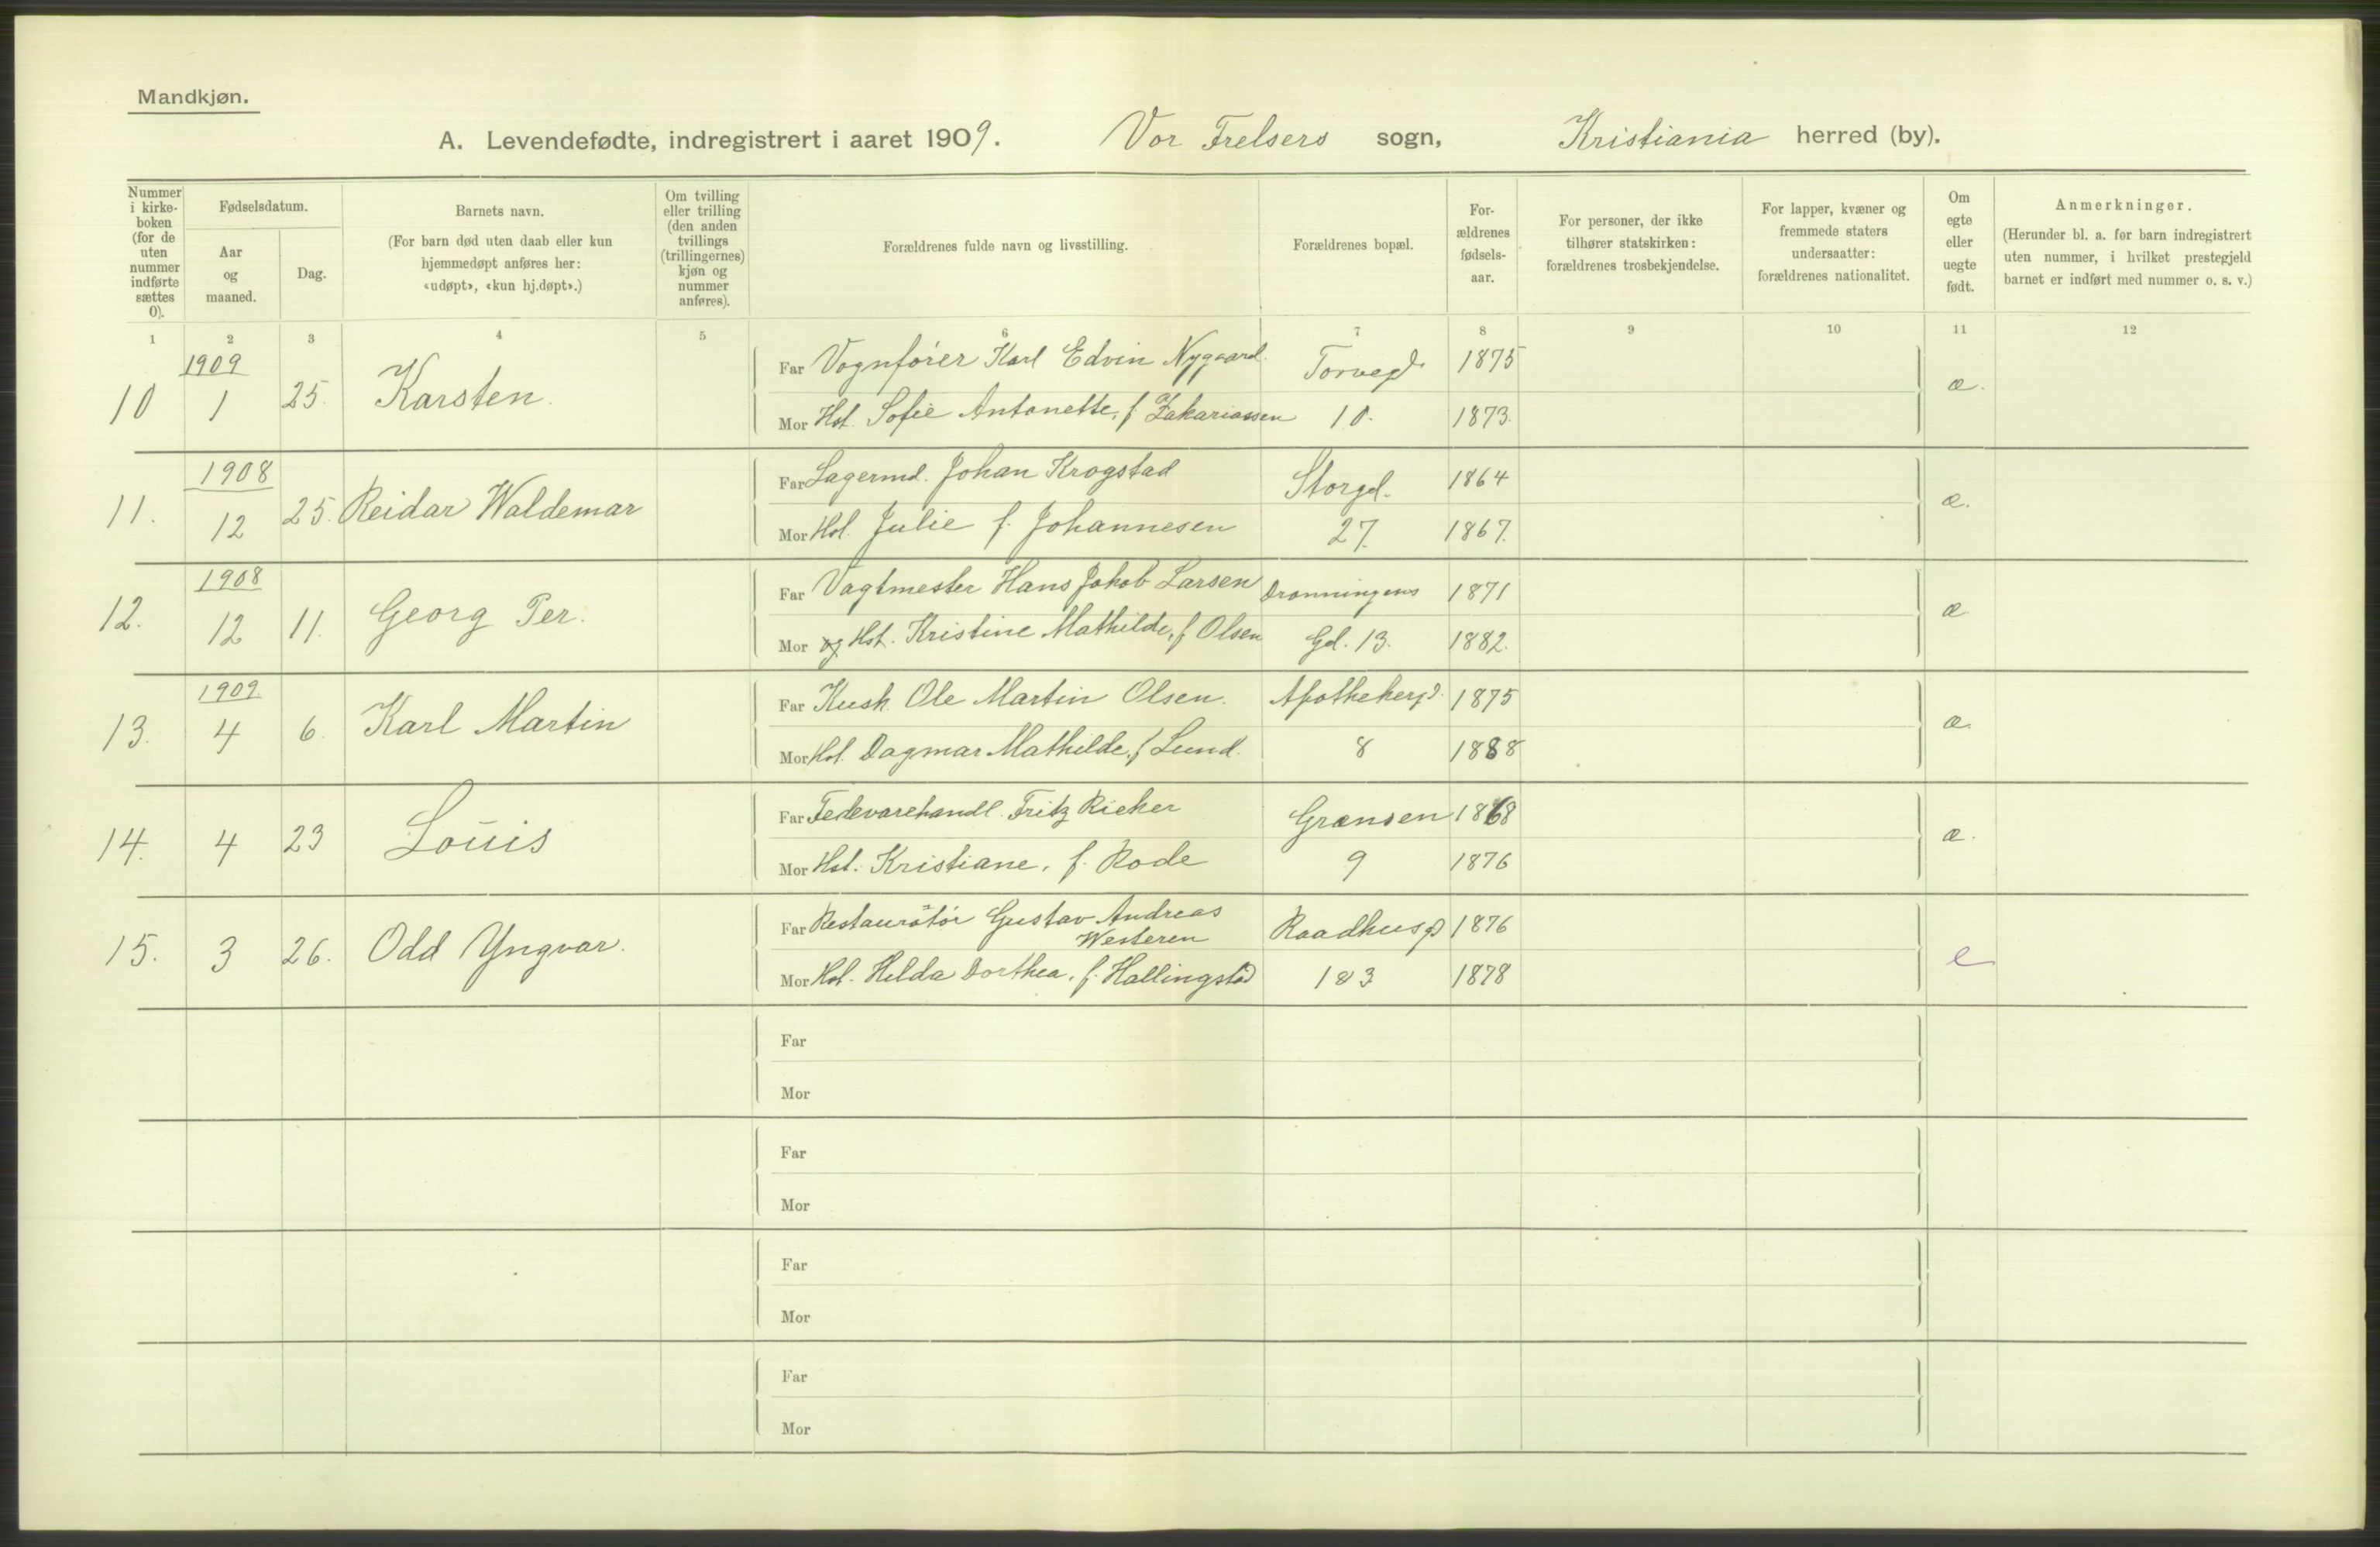 Mandkjøn.
A. Levendefødte, indregistrert i aaret 1909. Vor Frelsers sogn, Kristiania herred (by).
Nummer i kirke-boken (for de uten nummer indførte sættes 0).
Fødselsdatum.
Aar og maaned.
Dag.
Barnets navn.
(For barn død uten daab eller kun hjemmedøpt anføres her: «udøpt», «kun hj.døpt».)
Om tvilling eller trilling (den anden tvillings (trillingernes) kjøn og nummer anføres).
Forældrenes fulde navn og livsstilling.
Forældrenes bopæl.
For-ældrenes fødsels-aar.
For personer, der ikke tilhører statskirken: forældrenes trosbekjendelse.
For lapper, kvæner og fremmede staters undersaatter: forældrenes nationalitet.
Om egte eller uegte født.
Anmerkninger.
(Herunder bl. a. for barn indregistrert uten nummer, i hvilket prestegjeld barnet er indført med nummer o. s. v.)
1 2 3 4 5 6 7 8 9 10 11 12
1909
10 1 25. Karsten.
Far Vognfører Karl Edvin Nygaard. Torvegd. 1875
Mor Hst. Sofie Antonette, f. Zakariassen 10. 1873.
æ.
1908
11. 12 25. Reidar Waldemar
Far Lagermd. Johan Krogstad Storgd. 1864
Mor Hst. Julie f. Johannesen 27. 1867.
æ.
1908
12. 12 11. Georg Per.
Far Vagtmester Hans Jakob Larsen Dronningens 1871
Mor og Hst. Kristine Mathilde, f. Olsen Gd. 13. 1882.
æ
1909
13. 4 6. Karl Martin
Far Kusk Ole Martin Olsen. Apothekergd. 1875
Mor Hst. Dagmar Mathilde, f. Lund. 8 1888
æ.
14. 4 23 Louis
Far Fedevarehandl. Fritz Rieker Grænsen 1868
Mor Hst. Kristiane, f. Rode 9 1876
æ.
15. 3 26. Odd Yngvar.
Far Restauratør Gustav Andreas Westeren Raadhusgd 1876
Mor Hst. Hilda Dorthea, f. Hallingstad 1878
e
Far
Mor
Far
Mor
Far
Mor
Far
Mor